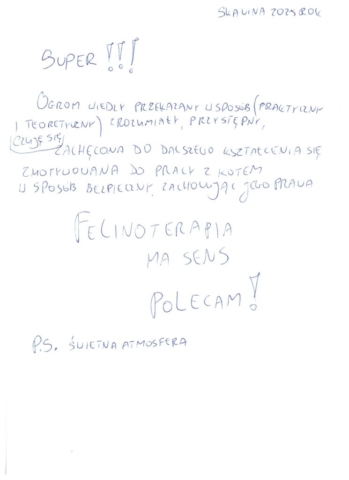 SKAWINA 2025 ROK
SUPER !!!
OGROM WIEDZY PRZEKAZANY W SPOSÓB (PRAKTYCZNY
I TEORETYCZNY) ZROZUMIAŁY, PRZYSTĘPNY,
CZUJĘ SIĘ
ZACHĘCONA DO DALSZEGO KSZTAŁCENIA SIĘ
ZMOTYWOWANA DO PRACY Z KOTEM
W SPOSÓB BEZPIECZNY, ZACHOWUJĄC JEGO PRAWA
FELINOTERAPIA
MA SENS
POLECAM!
P.S. ŚWIETNA ATMOSFERA